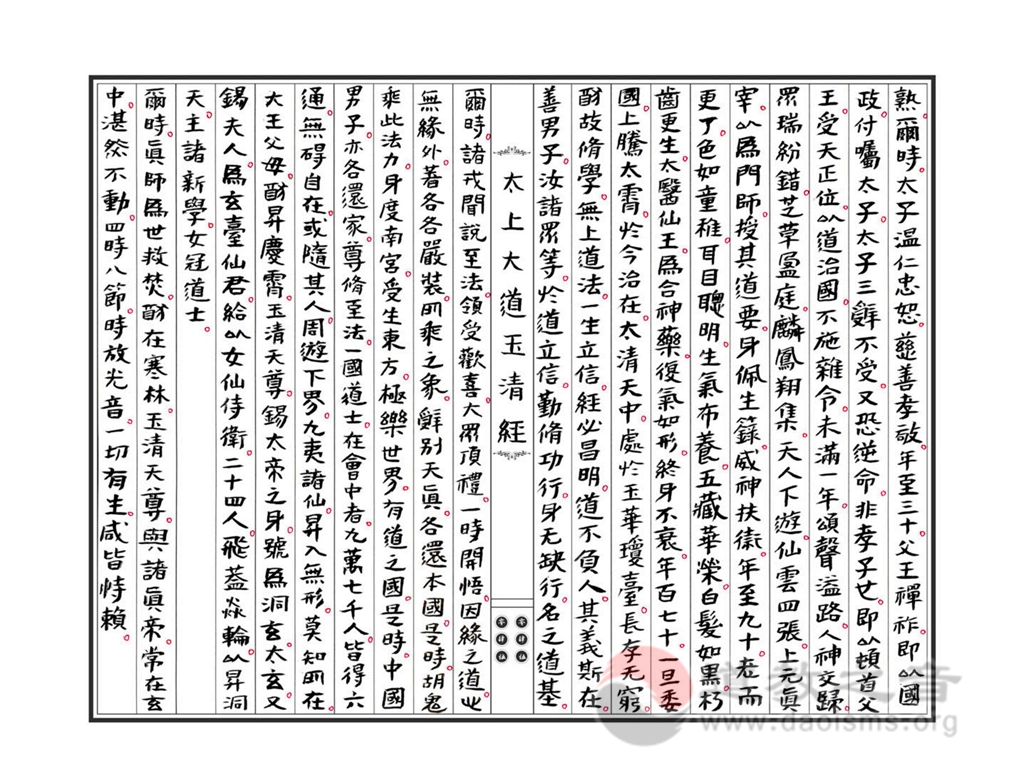 熟爾時太子溫仁忠恕慈善孝敬年至三十父王禪祚即以國
政付囑太子太子三辭不受又恐逆命非孝子也即以頓首父
王受天正位以道治國不施雜令未滿一年頌聲溢路人神交歸
眾瑞紛錯芝草盈庭麟鳳翔集天人下遊仙雲四張上元真
宰以為門師授其道要身佩生籙威神扶衛年至九十老而
更丁色如童稚耳目聰明生氣布養五藏華榮白髮如黑朽
齒更生太醫仙王為合神藥復氣如形終身不衰年百七十一旦委
國上騰太霄於今治在太清天中處於玉華瓊臺長存无窮
酧故脩學無上道法一生立信經必昌明道不負人其義斯在
善男子汝諸眾等於道立信勤脩功行身无缺行名之道基
太上大道玉清經
爾時諸戎聞說至法領受歡喜大眾頂禮一時開悟因緣之道止
無緣外著各各嚴裝所乘之象辭別天真各還本國是時胡鬼
乘此法力身度南宮受生東方極樂世界有道之國是時中國
男子亦各還家尊脩至法一國道士在會中者九萬七千人皆得六
通無碍自在或隨其人周遊下界九夷諸仙昇入無形莫知所在
大王父母酧昇慶霄玉清天尊錫太帝之身號為洞玄太玄又
錫夫人為玄臺仙君給以女仙侍衛二十四人飛蓋焱輪以昇洞
天主諸新學女冠道士
爾時真師為世救焚酧在寒林玉清天尊與諸真帝常在玄
中湛然不動四時八節時放光音一切有生咸皆恃賴
道教之音
www.daoisms.org